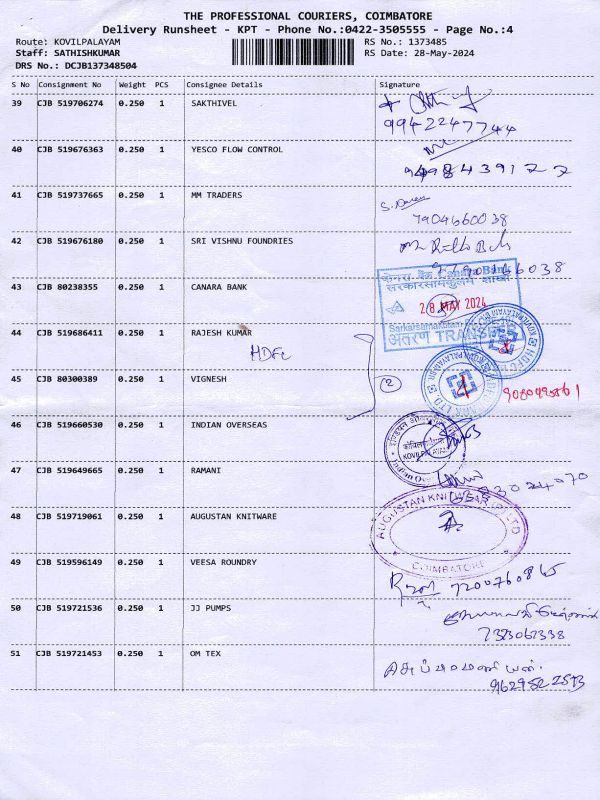 THE PROFESSIONAL COURIERS, COIMBATORE
Delivery Runsheet - KPT - Phone No.:0422-3505555 - Page No.:4
Route: KOVILPALAYAM RS No.: 1373485
Staff: SATHISHKUMAR RS Date: 28-May-2024
DRS No.: DCJB137348504
S No Consignment No Weight PCS Consignee Details Signature
39 CJB 519706274 0.250 1 SAKTHIVEL
9942247744
40 CJB 519676363 0.250 1 YESCO FLOW CONTROL
41 CJB 519737665 0.250 1 MM TRADERS
7904660038
42 CJB 519676180 0.250 1 SRI VISHNU FOUNDRIES
43 CJB 80238355 1 0.250 1 CANARA BANK
केनरा बैंक Canara Bank
28 MAY 2024
अंतरण TRANSFER
44 CJB 519686411 0.250 1 RAJESH KUMAR
HDFC
45 CJB 80300389 0.250 1 VIGNESH
2
46 CJB 519660530 0.250 1 INDIAN OVERSEAS
KOVILPALAYAM
47 CJB 519649665 0.250 1 RAMANI
48 CJB 519719061 0.250 1 AUGUSTAN KNITWARE
AUGUSTAN KNITWEAR (P) LTD
COIMBATORE
49 CJB 519596149 0.250 1 VEESA ROUNDRY
7200760865
50 CJB 519721536 0.250 1 JJ PUMPS
51 CJB 519721453 0.250 1 OM TEX